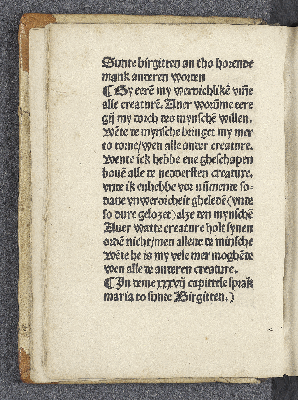 Sunte birgitten an tho horende
mank anderen worden
¶ Gy eerē my werdichlikē vūⁿe
alle creaturē. Auer worūme eere
gij my doch des mynschē willen.
Wēte de mynsche bringet my mer
to torne/wen alle ander creature.
Wente ick hebbe ene gheschapen
bouē alle de neddersten creature.
vnde ik enhebbe vor nūmende so-
dane vnwerdicheit ghelēdē (vnde
so dure gelozet) alze den mynschē
Auer watte creature holt synen
ordē nicht/men allene de mīnsche
wēte he is my vele mer moghēde
wen alle de anderen creature.
¶ In deme xxxvij capittele sprak
maria to sunte Birgitten.)